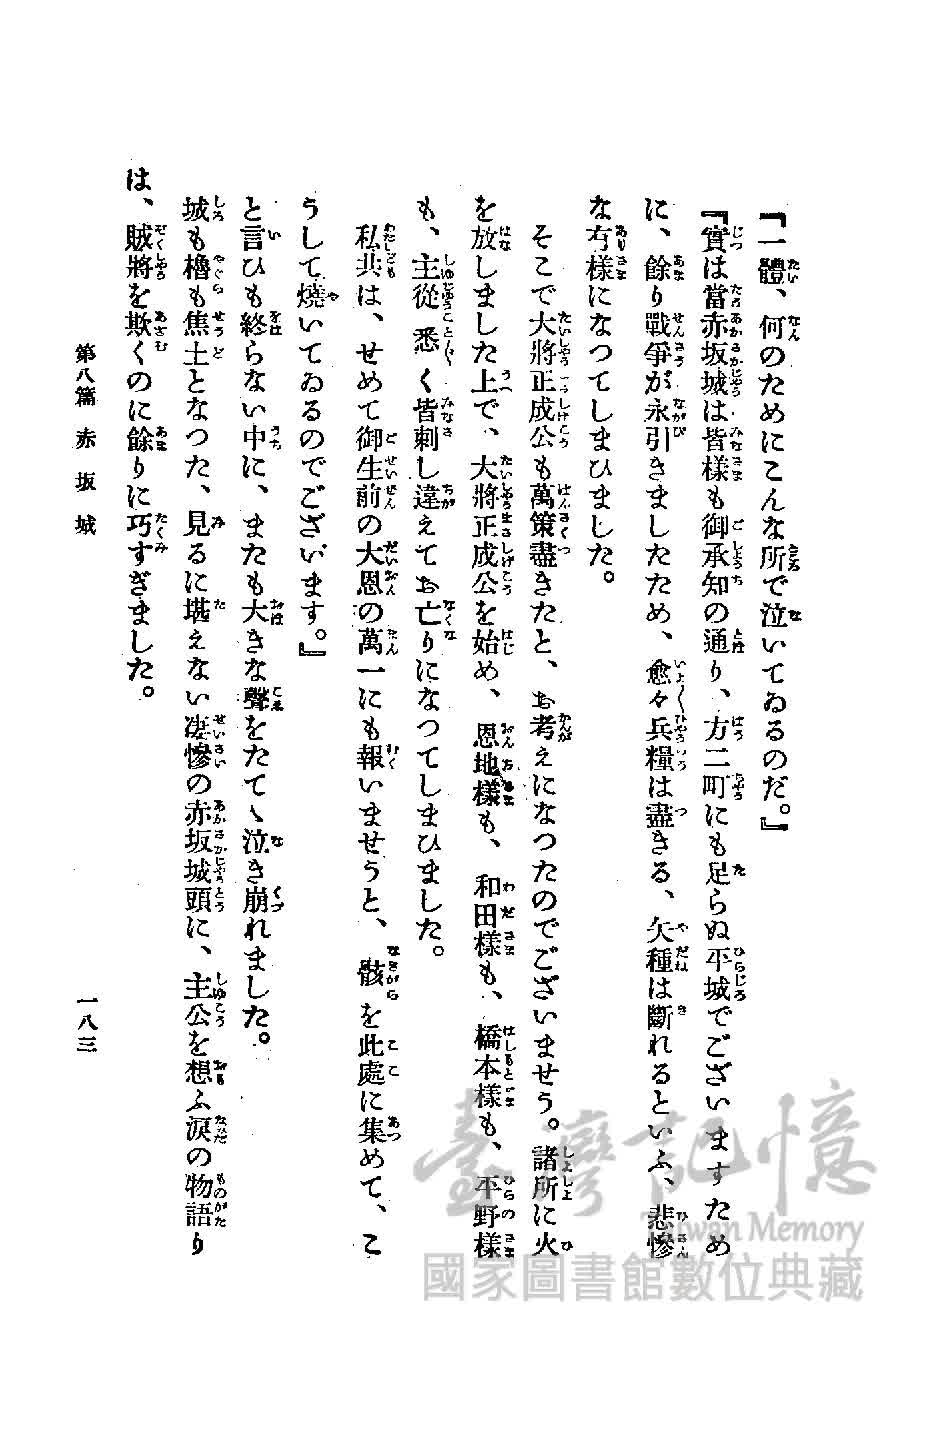 『一體、何のためにこんな所で泣いてゐるのだ。』
『實は當赤坂城は皆樣も御承知の通り、方二町にも足らぬ平城でございますため
に、餘り戰爭が永引きましたため、愈々兵糧は盡きる、矢種は斷れるといふ、悲慘
な有樣になつてしまひました。
そこで大將正成公も萬策盡きたと、お考えになつたのでございませう。諸所に火
を放しました上で、大將正成公を始め、恩地樣も、和田樣も、橋本樣も、平野樣
も、主從悉く皆刺し違えてお亡りになつてしまひました。
私共は、せめて御生前の大恩の萬一にも報いませうと、骸を此處に集めて、こ
うして燒いてゐるのでございます。』
と言ひも終らない中に、またも大きな聲をたてゝ泣き崩れました。
城も櫓も焦土となつた、見るに堪えない凄慘の赤坂城頭に、主公を想ふ淚の物語り
は、賊將を欺くのに餘りに巧すぎました。
第八篇 赤坂城
一八三
臺灣記憶
Taiwan Memory
國家圖書館數位典藏